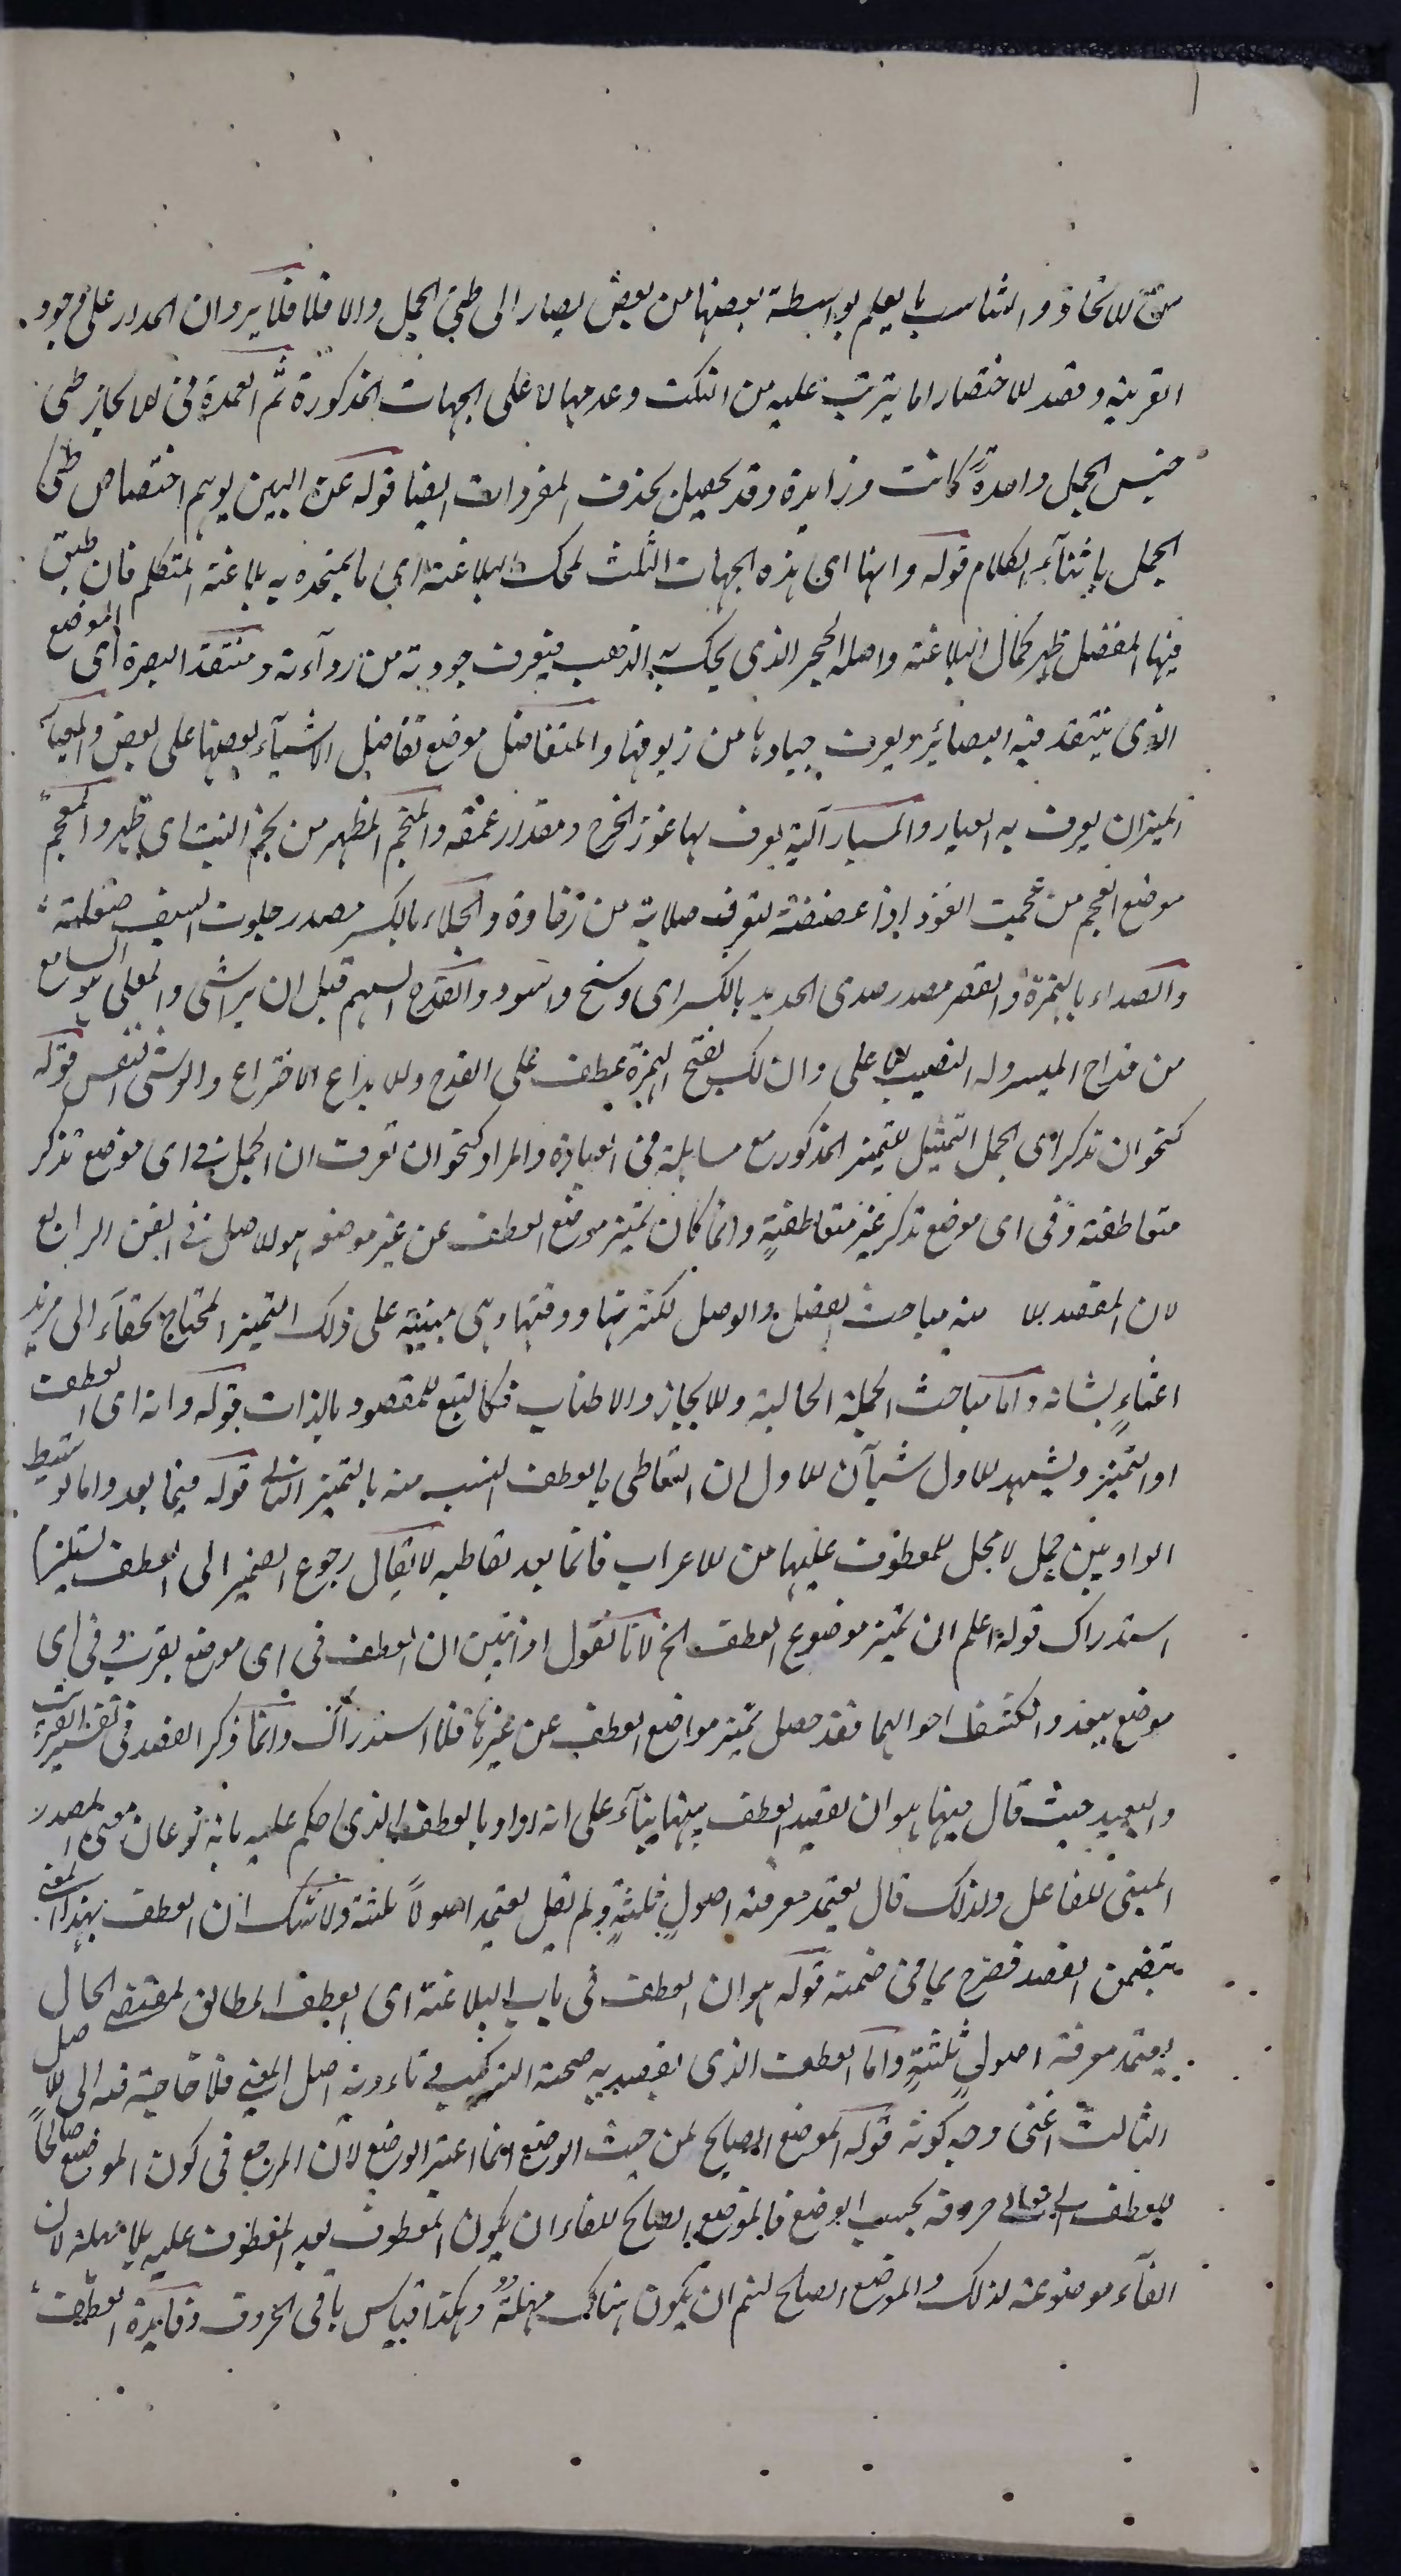 من الاتحاد والتناسب ما يعلم بواسطة بعضها من بعض يصار الى طي الجمل والا فلا فلا يرد ان المدار على وجود
القرينة وقصد الاختصار اما يترتب عليه من النكت وعدمها لا على الجهات المذكورة ثم العمدة في الايجاز طي
جنس الجمل واحدة كانت وزايدة وقد يحصل بحذف المفردات ايضا قوله عن البين يوهم اختصاص طي
الجمل باثناء الكلام قوله وانها اى هذه الجهات الثلث لمحك البلاغة اى ما يمتحن به بلاغة المتكلم فان طبق
فيها المفصل ظهر كمال البلاغة واصله الحجر الذى يحك به الذهب فيعرف جودته من رداءته ومنتقد البصيرة اى الموضع
الذى ينتقد فيه البصائر ويعرف جيادها من زيوفها والمتفاضل موضع تفاضل الاشياء بعضها على بعض والمعيار
الميزان يعرف به العيار والمسبار آلة يعرف بها غور الجرح ومقدار عمقه والمنجم المظهر من نجم النبت اى ظهر والمعجم
موضع العجم من عجمت العود اذا عضضته لتعرف صلابته من رخاوة والجلاء بالكسر مصدر جلوت السيف صقلته
والصداء بالهمزة والقصر مصدر صدى الحديد بالكسر اى وسخ واسود والقدح السهم قبل ان يراش والمعلى هو السابع
من قداح الميسر وله النصيب الاعلى وان لك بفتح الهمزة عطف على القدح والابداع الاختراع والوشى النقش قوله
كنحو ان تذكر اى الجمل التمثيل للتميز المذكور مع مساهلة في العبارة والمراد كنحو ان تعرف ان الجمل في اى موضع تذكر
متعاطفة وفى اى موضع تذكر غير متعاطفة وانما كان تميز موضع العطف عن غير موضعه هو الاصل في الفن الرابع
لان المقصد الا منه مباحث الفصل والوصل لكثرتها ودقتها وهى مبنية على ذلك التميز المحتاج لخفاء الى مزيد
اعتناء بشانه واما مباحث الجملة الحالية والايجاز والاطناب فكالتبع للمقصود بالذات قوله وانه اى العطف
او التميز ويشهد للاول شيآن الاول ان التعاطى بالعطف انسب منه بالتميز الثانى قوله فيما بعد واما توسيط
الواو بين جمل لا محل للمعطوف عليها من الاعراب فانما بعد تعاطيه لا يقال رجوع الضمير الى العطف يستلزم
استدراك قوله اعلم ان تميز موضع العطف الخ لانا نقول اذا تبين ان العطف في اى موضع يقرب وفى اى
موضع يبعد وانكشف احوالهما فقد حصل تميز مواضع العطف عن غيرها فلا استدراك وانما ذكر القصد في تفسير القريب
والبعيد حيث قال فيها هو ان يقصد العطف بينها بناء على انه اراد بالعطف الذى حكم عليه بانه نوعان معنى المصدر
المبنى للفاعل ولذلك قال يعتمد معرفة اصول ثلثة ولم يقل يعتمد اصولا ثلثة ولا شك ان العطف بهذا المعنى
يتضمن القصد فصرح بما في ضمنه قوله هو ان العطف في باب البلاغة اى العطف المطابق لمقتضى الحال
يعتمد معرفة اصول ثلثة واما العطف الذى يقصد به صحة التركيب في تاءدية اصل المعنى فلا حاجة فيه الى الاصل
الثالث اعنى وجه كونه قوله الموضع الصالح لمن حيث الوضع انما اعتبر الوضع لان المرجع في كون الموضع صالحا
للعطف الى معانى حروفه بحسب الوضع فالموضع الصالح للفاء ان يكون المعطوف بعد المعطوف عليه بلا مهلة لان
الفاء موضوعة لذلك والموضع الصالح لثم ان يكون هناك مهلة وهكذا قياس باقى الحروف وفايدة العطف